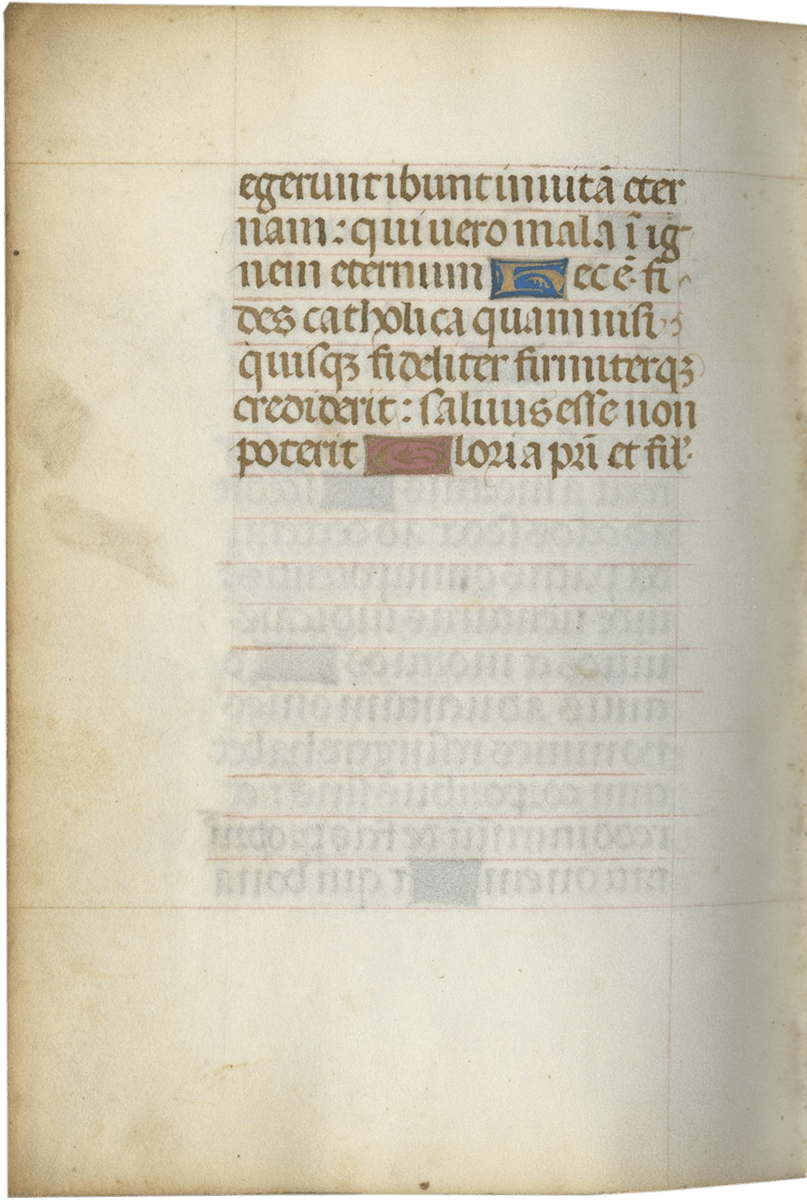 egerunt ibunt in uitā eter
nam : qui uero mala ī ig
nem eternum Hec ē fi
des catholica quam nisi
quisqꝫ fideliter firmiterqꝫ
crediderit : saluus esse non
poterit Gloria pr̄i et fil'